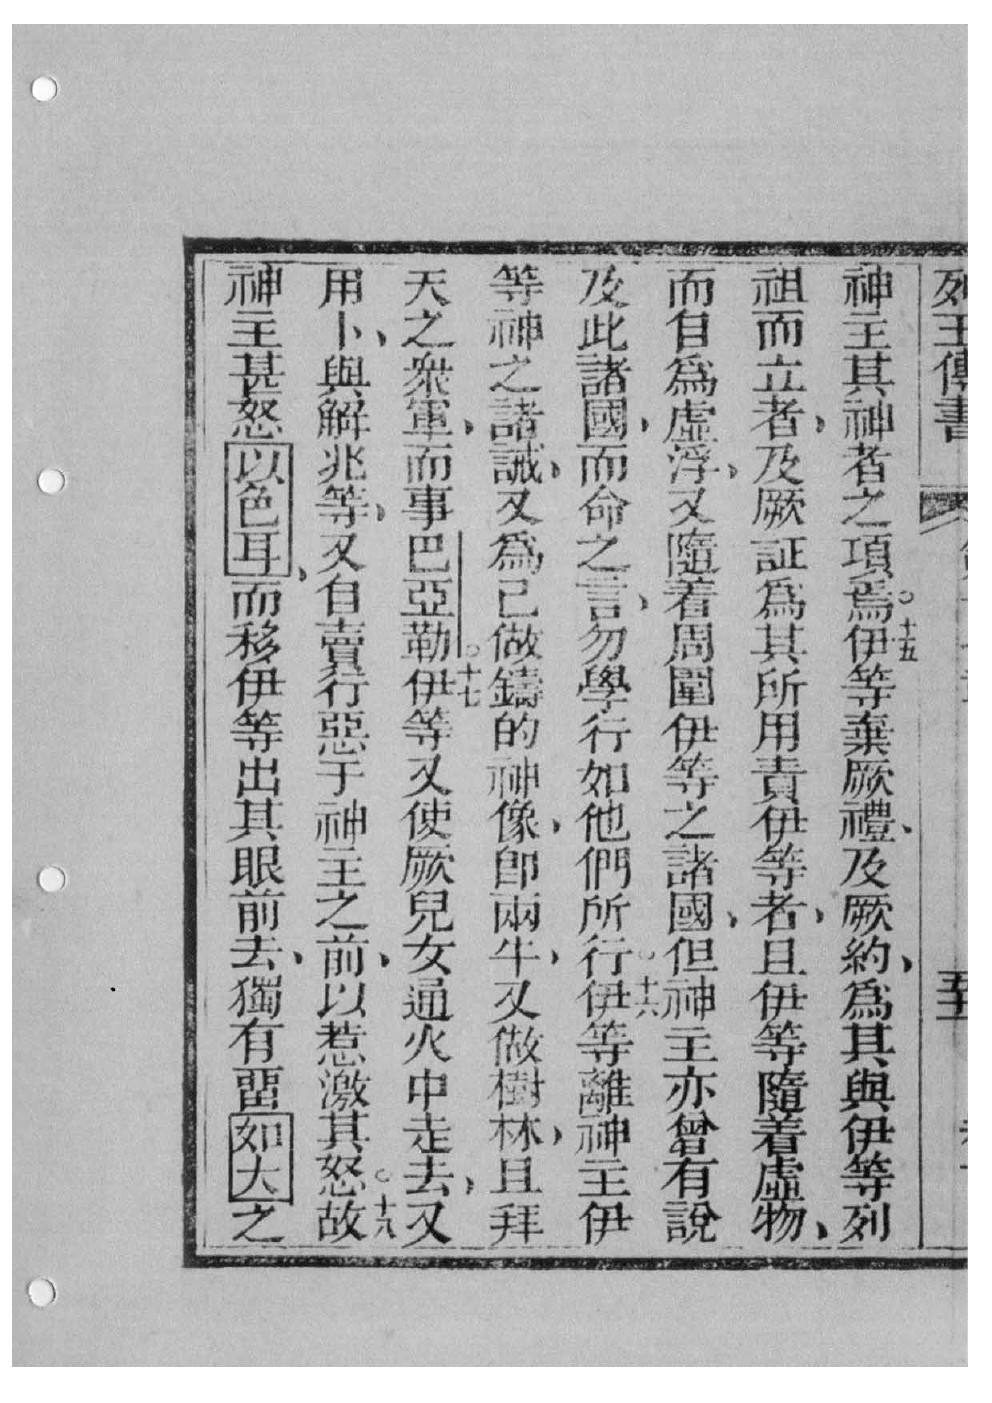 列王傳書
神主其神者之項焉。十五伊等棄厥禮、及厥約、爲其與伊等列
祖而立者、及厥証爲其所用責伊等者、且伊等隨着虛物、
而自爲虛浮、又隨着周圍伊等之諸國、但神主亦曾有說
及此諸國、而命之言、勿學行如他們所行。十六伊等離神主伊
等神之諸誡、又爲己做鑄的神像、卽兩牛、又做樹林、且拜
天之衆軍、而事巴亞勒。十七伊等又使厥兒女通火中走去、又
用卜、與解兆等、又自賣行惡于神主之前、以惹激其怒。十八故
神主甚怒以色耳、而移伊等出其眼前去、獨有畱如大之